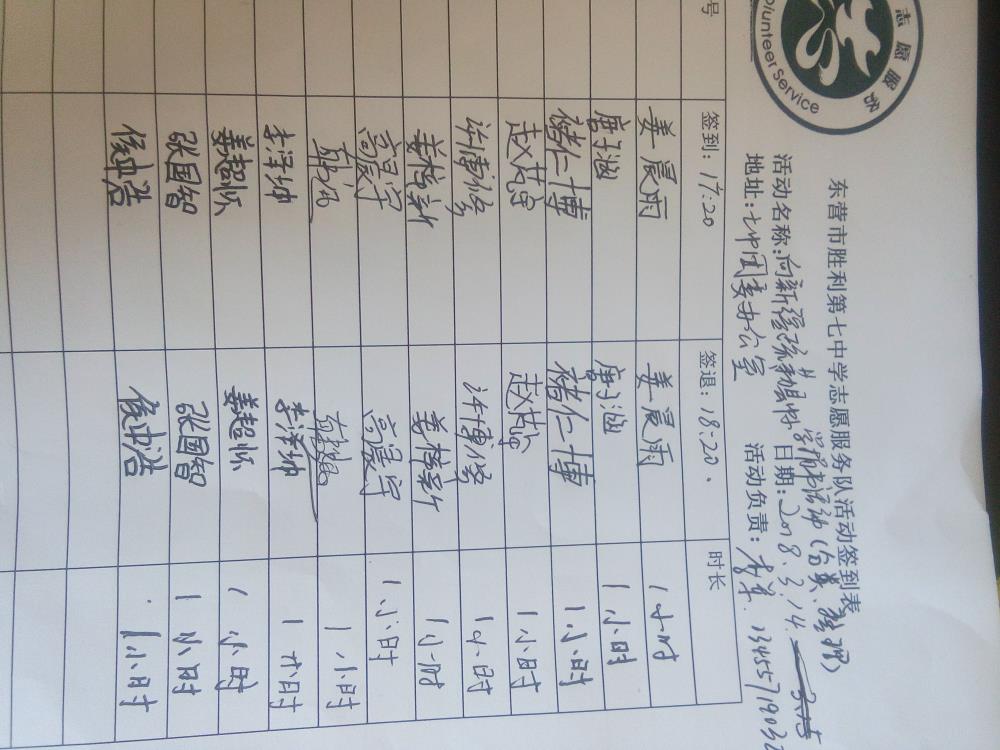 志愿服务
Volunteer Service
东营市胜利第七中学志愿服务队活动签到表
活动名称:向新疆疏勒县中学捐书活动(分类.整理) 日期:2018.3.14
地址:七中团委办公室 活动负责:
号 签到:17:20 签退:18:20. 时长
姜晨雨 姜晨雨 1小时
唐子涵 唐子涵 1小时
褚仁博 褚仁博 1小时
赵 赵 1小时
许博 许博 1小时
姜 新 姜 新 1小时
高晨 高晨 1小时
1小时
李泽坤 李泽坤 1小时
姜超 姜超 1小时
张国智 张国智 1小时
侯 浩 侯 浩 1小时